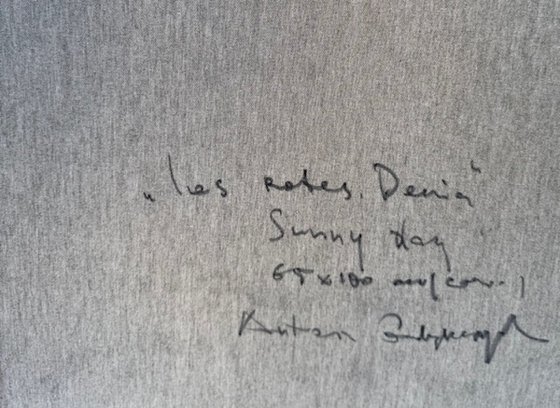 „Les rotes. Denia"
Sunny day
65x100
Anton